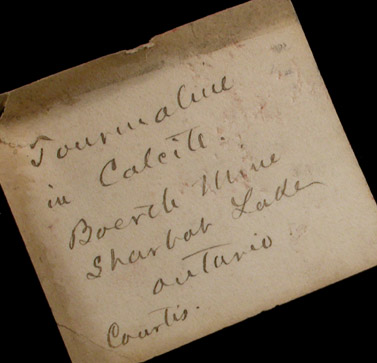 Tourmaline
in Calcite.
Mine
Sharbot Lake
Ontario
Courtis.